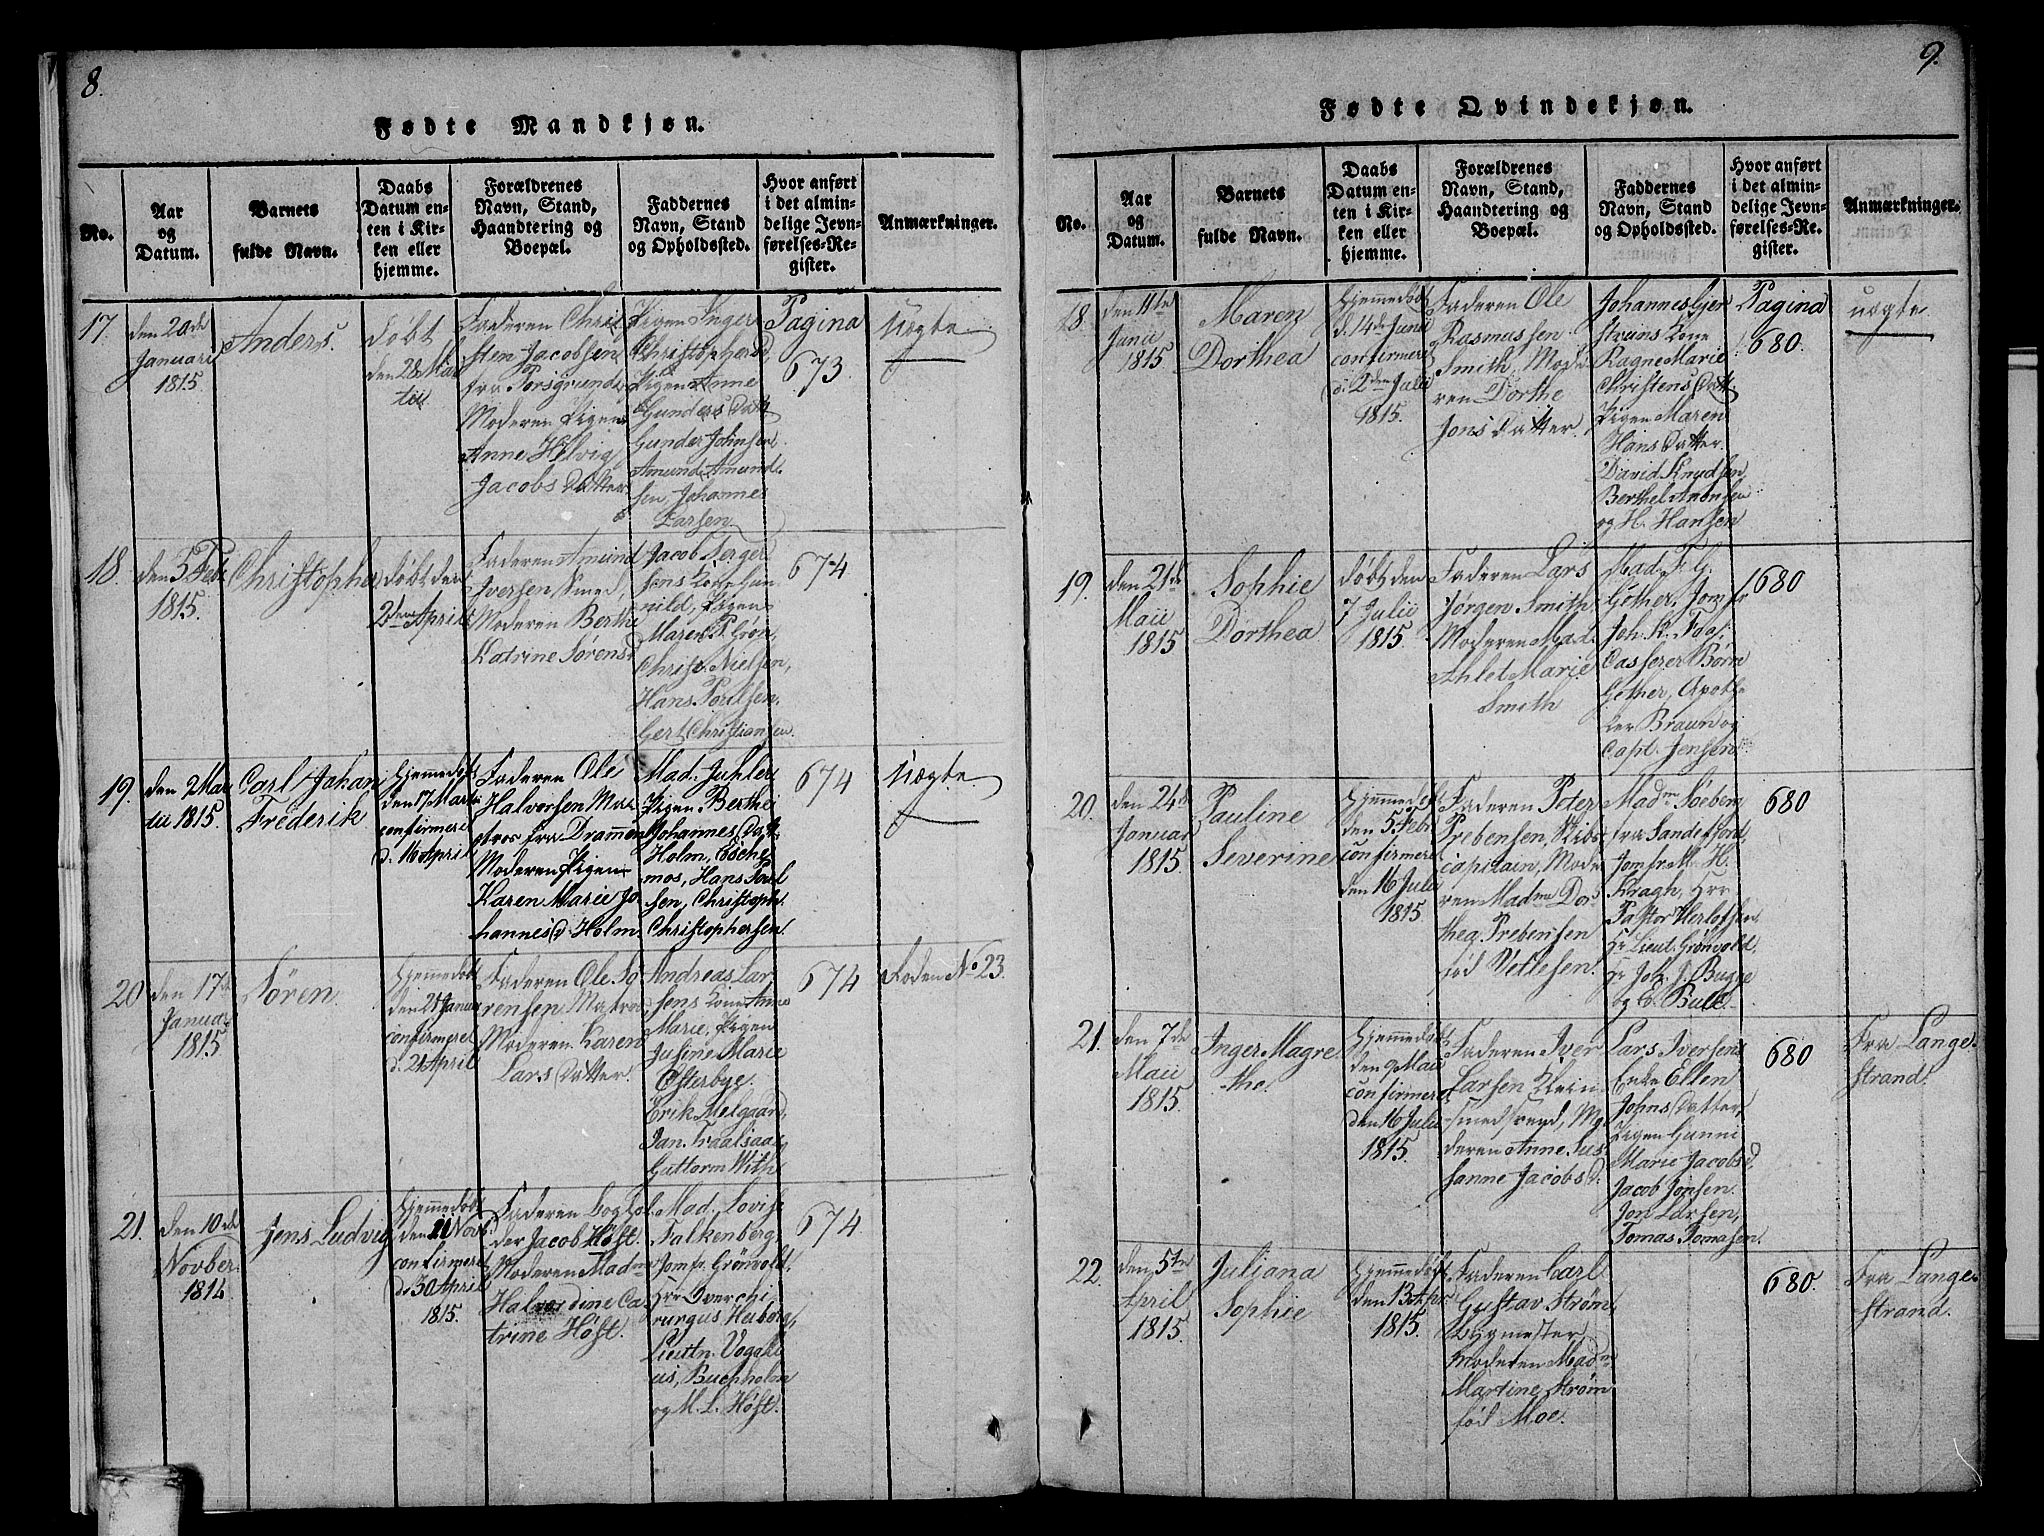 8.
Fødte Mandkjøn.
No.
Aar
og
Datum.
Barnets
fulde Navn.
Daabs
Datum en-
ten i Kir-
ken eller
hjemme.
Forældrenes
Navn, Stand,
Haandtering og
Boepæl.
Faddernes
Navn, Stand
og Opholdssted.
Hvor anført
i det almin-
delige Jevn-
førelses-Re-
gister.
Anmærkninger.
17.
den 20de
Januari
1815.
Anders.
døbt
den 28 Mar
tii
Faderen Chri
sten Jacobsen
fra Porsgrund.
Moderen Pigen
Anne Helvig
Jacobs Datter
Pigen Inger
Christophersd.
Pigen Anne
Gunders Datt.
Gunder Johnsen
Amund Amund-
sen, Johannes
Larsen.
Pagina
673.
Uægte
18.
den 5 Feb.
1815.
Christopher
døbt den
2den April
Faderen Amund
Iversen Smed,
Moderen Berthe
Katrine Sørensd
Jacob Terger
sens Kone Gun
nild, Pigen
Maren P. Grön,
Christ. Nielsen,
Hans Poulsen.
Gert Christiansen.
674
19.
den 2 Mar
tii 1815.
Carl Johan
Frederik
Hjemmedøbt
den 17 Martii
confirmeret
d. 16 April
Faderen Ole
Halvorsen Ma-
tros fra Drammen
Moderen Pigen
Karen Marie Jo
hannisd. Holm.
Mad. Juhler
Pigen Berthe
Johannes Datt.
Holm, Esche
mos, Hans Poul
sen, Christoph.
Christophersen.
674
Uægte
20
den 17de
Januar
1815
Sören.
Hjemmedøbt
den 21 Januar
confirmeret
d. 21 April
Faderen Ole So
rensen Matros
Moderen Karen
Lars Datter.
Andreas Lar
sens Kone Anne
Marie, Pigen
Jusine Marie
Østerbye.
Erik Melgaard,
Jan. Traalsaas
Guttorm With
674
Roden No 23.
21.
den 10de
Novber.
1814
Jens Ludvig
Hjemmedøbt
den 11 Nov.
confirmeret
d. 30 April
1815.
Faderen Boghol
der Jacob Höst.
Moderen Madm
Halvordine Ca
trine Höst.
Mad. Lovise
Falkenberg,
Jomfr. Grönvold.
Hrr Overchi
rurgus Heiberg,
Lieutn. Vogeli
us, Buchholm
og M. L. Höst.
674
9.
Fødte Qvindekjøn.
No.
Aar
og
Datum.
Barnets
fulde Navn.
Daabs
Datum en-
ten i Kir-
ken eller
hjemme.
Forældrenes
Navn, Stand,
Haandtering og
Boepæl.
Faddernes
Navn, Stand
og Opholdssted.
Hvor anført
i det almin-
delige Jevn-
førelses-Re-
gister.
Anmærkninger.
18.
den 11te
Junii
1815
Maren
Dorthea
Hjemmedøbt
d. 14de Junii
confirmeret
d. 2den Julii
1815.
Faderen Ole
Rasmussen
Smith, Mode
ren Dorthe
Jons Datter.
Johannes Gjer
struns Kone
Ragne Marie
Christens Datt.
Pigen Maren
Hans Datter.
David Knudsen
Berthel Anonsen
og H. Hansen
Pagina
680.
uægte
19.
den 21de
Maii
1815
Sophie
Dorthea
døbt den
7 Julii
1815.
Faderen Lars
Jørgen Smith.
Moderen Mad.
Ahlet Marie
Smith
Mad. F. G.
Göther, Jomfr
Joh. K. Foss.
Casserer Børre
Göther, Apothe
ker Braun og
Capt. Jensen
680
20.
den 24de
Januar
1815.
Pauline
Severine
Hjemmedøbt
den 5 Febr.
confirmeret
den 16 Julii
1815
Faderen Peter
Prebensen, Skibs
capitain, Mode
ren Madme Dor
thea Prebensen
fød Vetlesen.
Madm Soeberg
fra Sandefjord,
Jomfr. M. H.
Kragh, Hrr
Pastor Herlofsen,
Hr. Lieut. Grönvold,
Hr. Joh. J. Bugge
og E. Bull
680
21.
den 7de
Maii
1815.
Inger Magre
the.
Hjemmedøbt
den 9 Maii
confirmeret
den 16 Julii
1815.
Faderen Iver
Larsen Klein
smedsvend, Mo
deren Anne Sus
sanne Jacobs d.
Lars Iversens
Enke Ellen
Johns Datter,
Pigen Gunni
Marie Jacobsd,
Jacob Jonsen.
Jon Larsen,
Tomas Tomasen.
680
Fra Lange-
strand.
22.
den 5te
April
1815.
Juliana
Sophie
Hjemmedøbt
den 13 Apr.
1815.
Faderen Carl
Gustav Ström,
Bygmester
Moderen Madm
Martine Ström
föd Moe.
680.
Fra Lange-
strand.